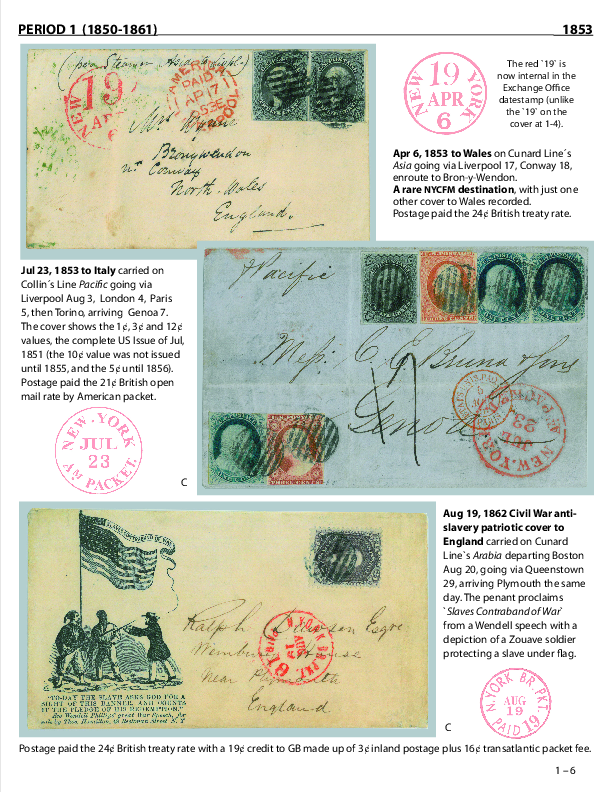 PERIOD 1 (1850-1861)
1853
(per Steamer Asia
19
AMERICA
PAID
AP 17
1853
LIVERPOOL
NEW YORK
19
APR
6
The red `19´ is
now internal in the
Exchange Office
datestamp (unlike
the `19´ on the
cover at 1-4).
Mrs Wynne
Bronywendon
nr Conway
North Wales
England.
Apr 6, 1853 to Wales on Cunard Line´s
Asia going via Liverpool 17, Conway 18,
enroute to Bron-y-Wendon.
A rare NYCFM destination, with just one
other cover to Wales recorded.
Postage paid the 24¢ British treaty rate.
Jul 23, 1853 to Italy carried on
Collin´s Line Pacific going via
Liverpool Aug 3, London 4, Paris
5, then Torino, arriving Genoa 7.
The cover shows the 1¢, 3¢ and 12¢
values, the complete US Issue of Jul,
1851 (the 10¢ value was not issued
until 1855, and the 5¢ until 1856).
Postage paid the 21¢ British open
mail rate by American packet.
NEW-YORK
JUL
23
AM PACKET
C
Pacific
Mess. C. E. Bruno & Sons
Genoa
NEW-YORK
JUL
23
AM PACKET
Aug 19, 1862 Civil War anti-
slavery patriotic cover to
England carried on Cunard
Line`s Arabia departing Boston
Aug 20, going via Queenstown
29, arriving Plymouth the same
day. The penant proclaims
`Slaves Contraband of War´
from a Wendell speech with a
depiction of a Zouave soldier
protecting a slave under flag.
SLAVES CONTRABAND OF WAR
Ralph Dawson Esqre
Wembury House
near Plymouth
England
"TO-DAY THE SLAVE ASKS GOD FOR A
SIGHT OF THIS BANNER, AND COUNTS
IT THE PLEDGE OF HIS REDEMPTION."
See Wendell Phillips' great War Speech, for
sale by Thos. Hamilton, 48 Beekman Street N. Y
N.YORK BR.PKT
AUG
19
PAID 19
C
Postage paid the 24¢ British treaty rate with a 19¢ credit to GB made up of 3¢ inland postage plus 16¢ transatlantic packet fee.
1 – 6